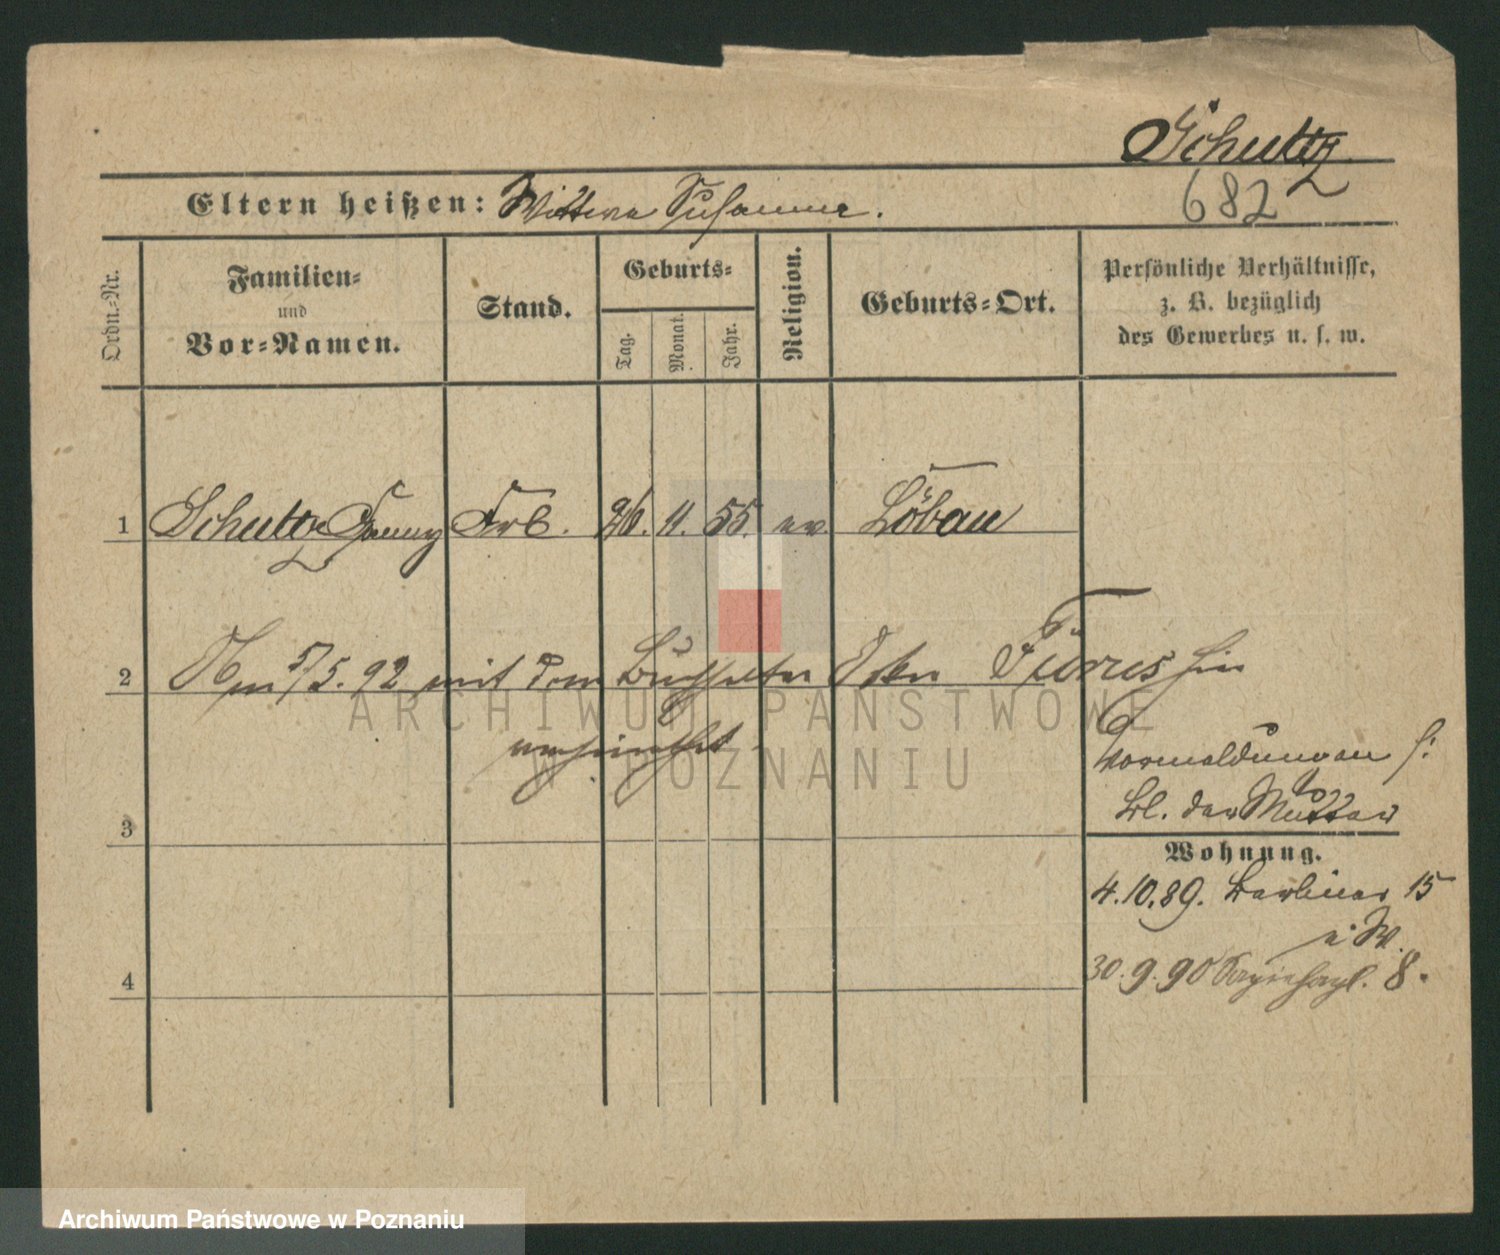 Schultz
Eltern heißen: Wittwe Susanne.
682
Ordn.-Nr.
Familien-
und
Vor-Namen.
Stand.
Geburts-
Tag.
Monat.
Jahr.
Religion.
Geburts-Ort.
Persönliche Verhältnisse,
z. B. bezüglich
des Gewerbes u. s. w.
1 Schultz Fanny 11. 55. ev Löbau
2 Am 5. 92 mit dem Buchhalter hier
verheirathet
Vormeldungen s:
Bl. der Mutter
3
Wohnung.
4.10.89. Berliner 15
b/ W.
30.9.90 8.
4
ARCHIWUM PAŃSTWOWE
W POZNANIU
Archiwum Państwowe w Poznaniu